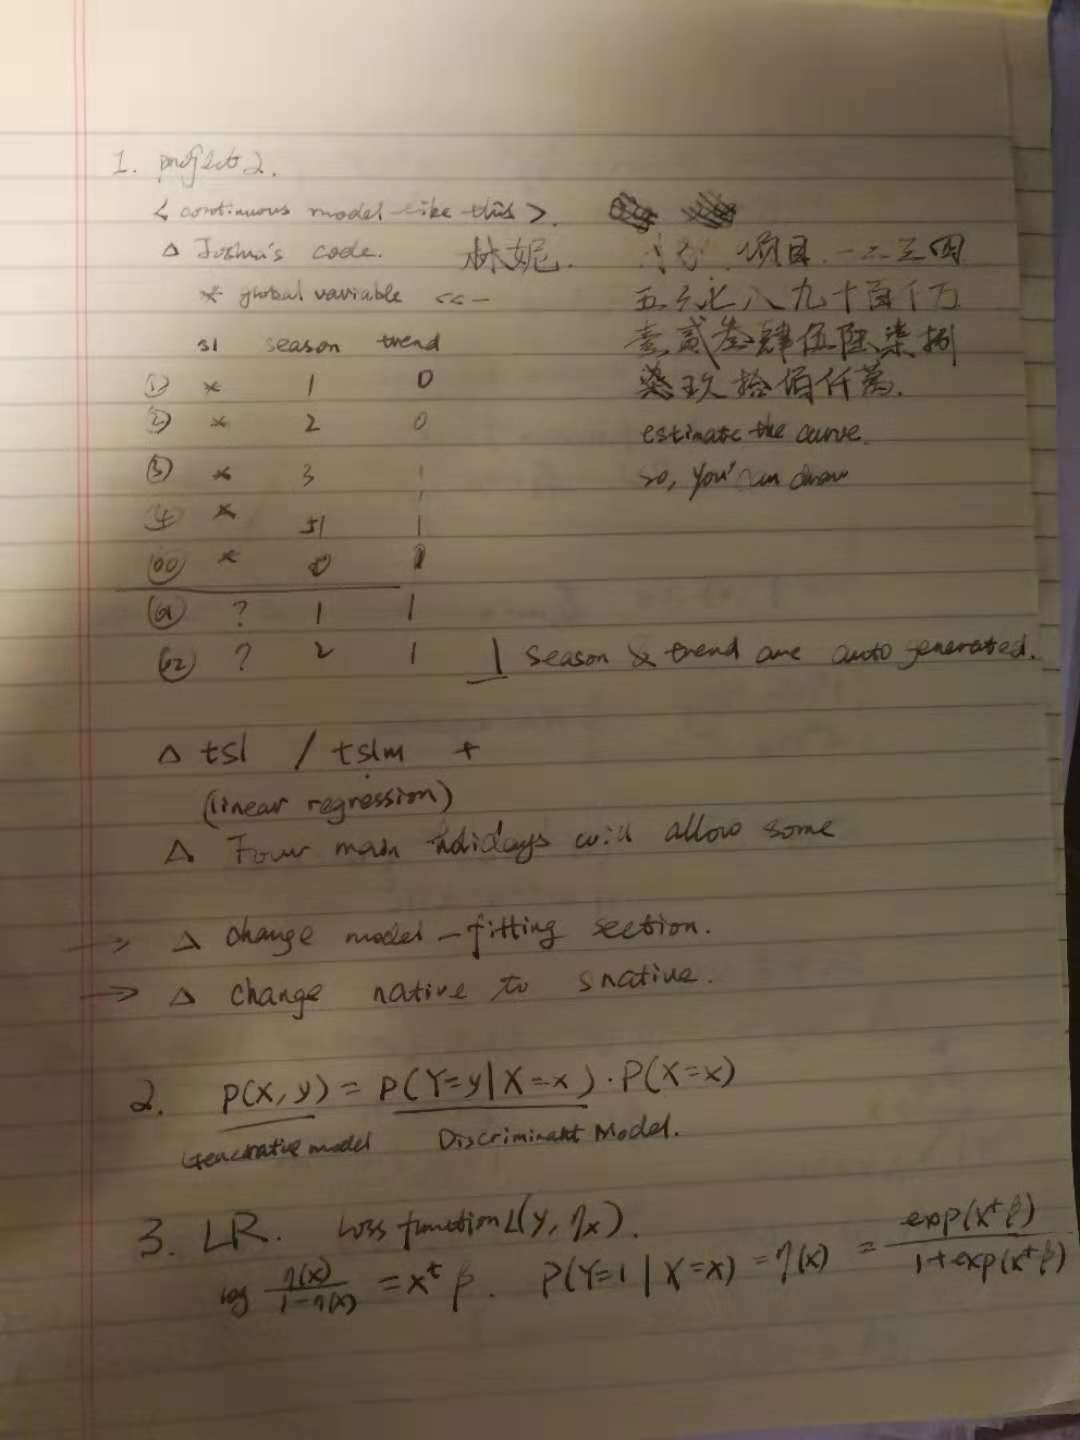 1. project 2.
< continuous model like this >.
△ Joshua's code. 林妮.
项目 一二三四
* global variable <<-
五六七八九十百千万
s1 season trend
壹贰叁肆伍陆柒捌
① * 1 0
玖拾佰仟萬.
② * 2 0
estimate the curve.
③ * 3 1
so, you' draw
④ * 51 1
* 0
? 1 1
62 ? 2 1
1 season & trend are auto generated.
△ tsl / tslm +
(linear regression)
△ Four main holidays will allow some
→ △ change model-fitting section.
→ △ change native to snative.
2. P(X,y) = P(Y=y|X=x)·P(X=x)
Generative model Discriminant Model.
3. LR. Loss function L(y, ηx).
log η(x)/1-η(x) = x^t β. P(Y=1|X=x) = η(x) = exp(x^t β)/1+exp(x^t β)